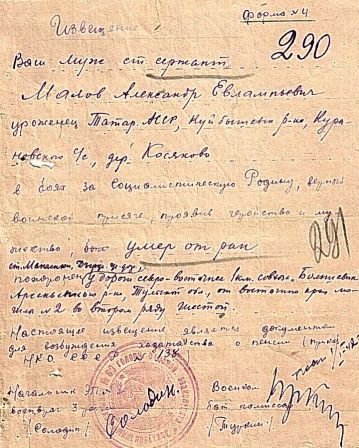 форма №4
Извещение
290
Ваш муж ст. сержант
Малов Александр Евлампьевич
уроженец Татар. АССР, Куйбышевск р-но, Кура-
новский с/с, дер. Косяково
в боях за Социалистическую Родину, верный
воинской присяге, проявив геройство и му-
жество был умер от ран
281
похоронен у дороги северо-восточнее 1 км. совхоза Большевик
Арсеньевского р-на, Тульской обл., от восточного края мо-
гила №2 во втором ряду шестой.
Настоящее извещение является документом
для возбуждения ходатайства о пенсии (приказ
НКО СССР № 138)
Начальник Военком
военврач 3 ранга бат. комиссар
Солодин
/Солодин/ /Туркин/